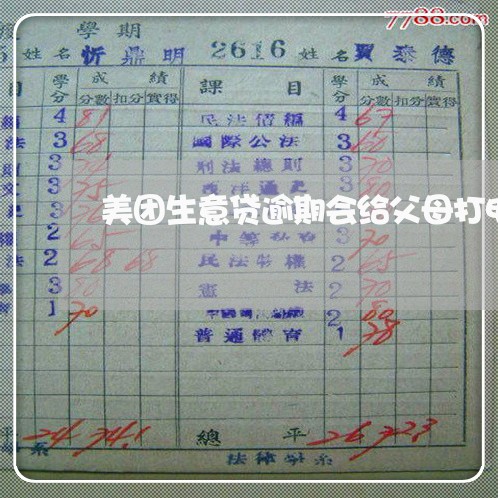 7788.com
學期
姓名 忻鼎明 2616 姓名 賈泰德
目 學分 成績 課目 學分 成績
分數 扣分 實得 分數 扣分 實得
4 81 民法債編 4 67
法 3 68 國際公法 3 60
3 刑法總則 3 70
3 75 西洋通史 3 80
美团生意贷逾期会给父母打电
2 65 3 70
法 2 68 68 民法物權 2 65
3 80 憲法 2 70
1 70 2 80
普通體育 1 78
平 24 74.1 總平 26 72.3
系 法律學系